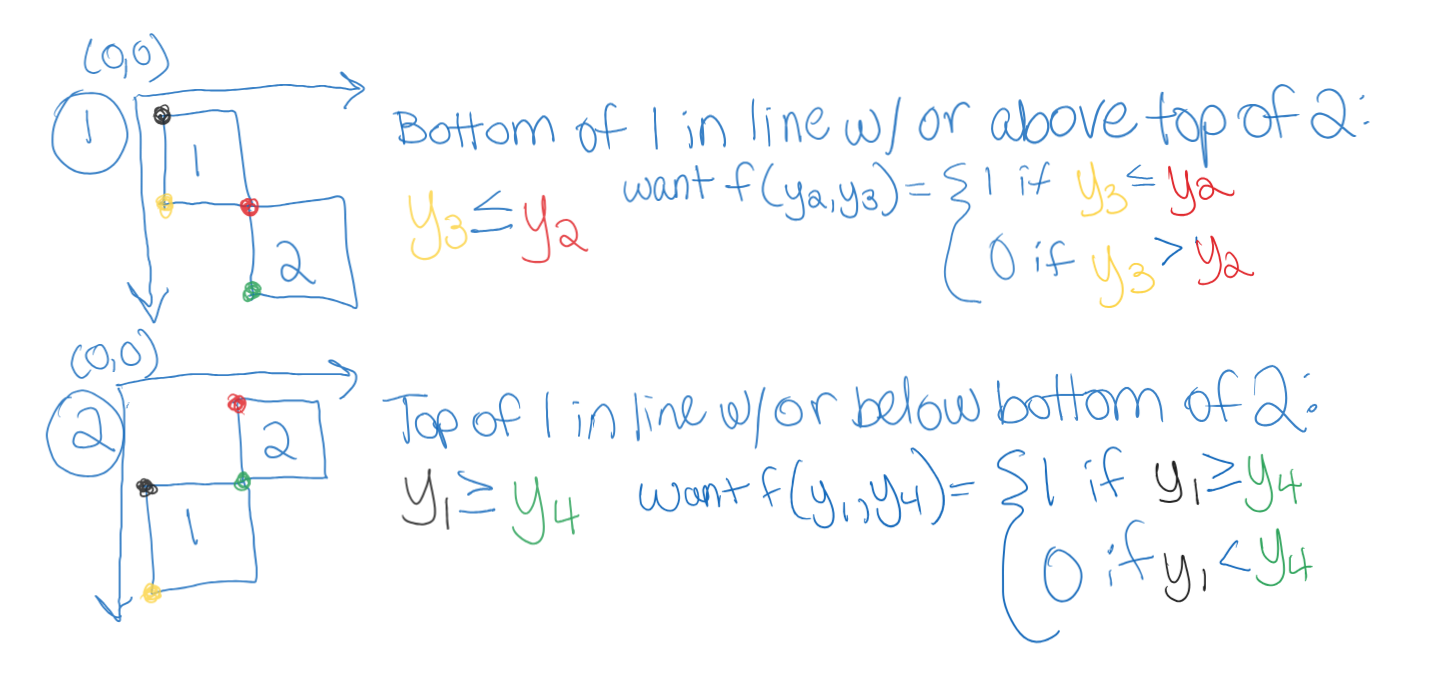 (0,0)
1
1
2
Bottom of 1 in line w/ or above top of 2:
y3 ≤ y2
want f(y2,y3) = { 1 if y3 ≤ y2
0 if y3 > y2
(0,0)
2
2
1
Top of 1 in line w/ or below bottom of 2:
y1 ≥ y4
want f(y1,y4) = { 1 if y1 ≥ y4
0 if y1 < y4